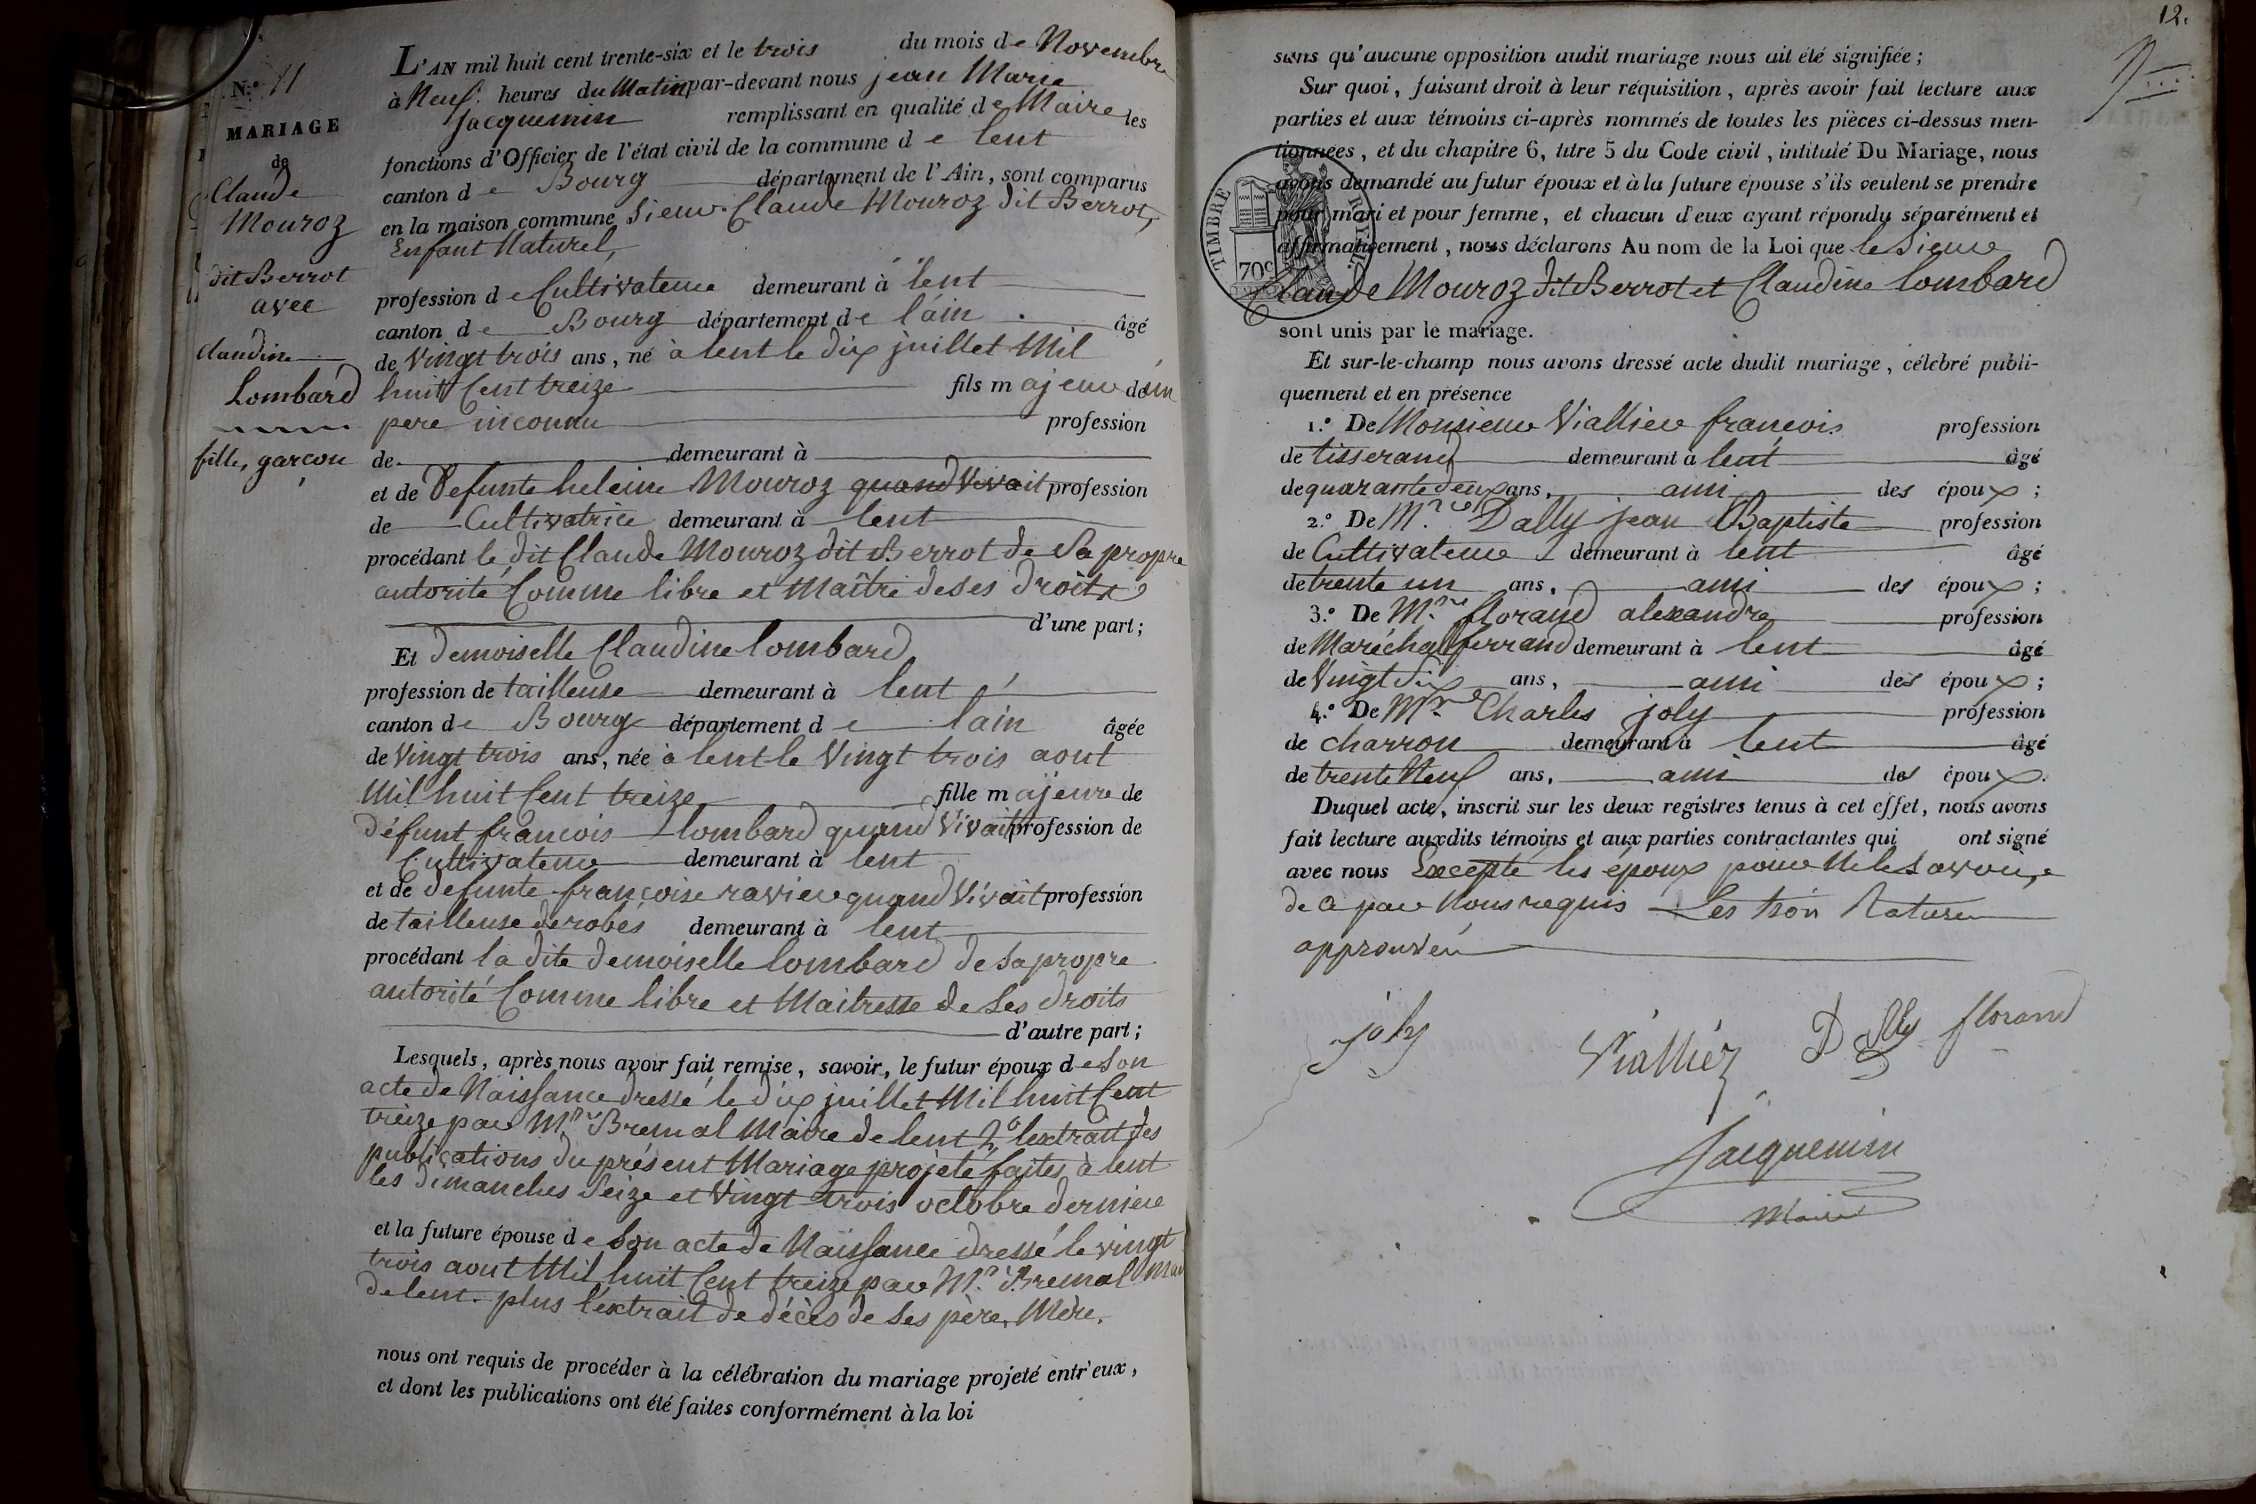 N.º 11
MARIAGE
de
Claude
Mouroz
dit Berrot
avec
claudine
Lombard
fille, garçon
L'AN mil huit cent trente-six et le trois du mois de Novembre
à Neuf heures du Matin par-devant nous jean Marie
Jacquemin remplissant en qualité de Maire les
fonctions d'Officier de l'état civil de la commune de lent
canton de Bourg département de l'Ain, sont comparus
en la maison commune Sieur Claude Mouroz dit Berrot,
Enfant Naturel,
profession de Cultivateur demeurant à lent
canton de Bourg département de l'ain âgé
de vingt trois ans, né à lent le dix juillet Mil
huit Cent treize fils majeur de un
pere inconnu profession
de demeurant à
et de Defunte heleine Mouroz quand Vivait profession
de Cultivatrice demeurant à lent
procédant le dit Claude Mouroz dit Berrot de Sa propre
autorité Comme libre et Maître de ses droits
d'une part;
Et demoiselle Claudine lombard
profession de tailleuse demeurant à lent
canton de Bourg département de lain âgée
de Vingt trois ans, née à lent le Vingt trois aout
Mil huit Cent treize fille majeure de
défunt francois lombard quand Vivait profession de
Cultivateur demeurant à lent
et de defunte françoise ravier quand Vivait profession
de tailleuse de robes demeurant à lent
procédant la dite demoiselle lombard de sa propre
autorité Comme libre et Maitresse de Ses droits
d'autre part;
Lesquels, après nous avoir fait remise, savoir, le futur époux de Son
acte de Naissance dressé le dix juillet Mil huit Cent
treize par Mr Bremal Maire de lent 2º lextrait des
publications du présent Mariage projeté faites à lent
les dimanches Seize et Vingt trois octobre dernier
et la future épouse de Son acte de Naissance dressé le vingt
trois aout Mil huit Cent treize par Mr Bremal Mai
de lent. plus l'extrait de décès de ses père, Mère.
nous ont requis de procéder à la célébration du mariage projeté entr'eux,
et dont les publications ont été faites conformément à la loi
12.
sans qu'aucune opposition audit mariage nous ait été signifiée;
Sur quoi, faisant droit à leur réquisition, après avoir fait lecture aux
parties et aux témoins ci-après nommés de toutes les pièces ci-dessus men-
tionnées, et du chapitre 6, titre 5 du Code civil, intitulé Du Mariage, nous
avons demandé au futur époux et à la future épouse s'ils veulent se prendre
pour mari et pour femme, et chacun d'eux ayant répondu séparément et
affirmativement, nous déclarons Au nom de la Loi que le Sieur
Claude Mouroz dit Berrot et Claudine lombard
TIMBRE ROYAL.
70c
sont unis par le mariage.
Et sur-le-champ nous avons dressé acte dudit mariage, célébré publi-
quement et en présence
1.º De Monsieur Viallier francois profession
de tisserand demeurant à lent âgé
de quarante deux ans, ami des époux;
2.º De Mr Dally jean Baptiste profession
de Cultivateur demeurant à lent âgé
de trente un ans, ami des époux;
3.º De Mr florand alexandre profession
de Maréchal ferrand demeurant à lent âgé
de Vingt dix ans, ami des époux;
4.º De Mr Charles joly profession
de charron demeurant à lent âgé
de trente Neuf ans, ami des époux.
Duquel acte, inscrit sur les deux registres tenus à cet effet, nous avons
fait lecture auxdits témoins et aux parties contractantes qui ont signé
avec nous Excepté les époux pour Ne le Savoir,
de a par Nous requis Les trón Rature
approuvéu
joly
Viallier
Dally
florand
Jacquemin
Maire